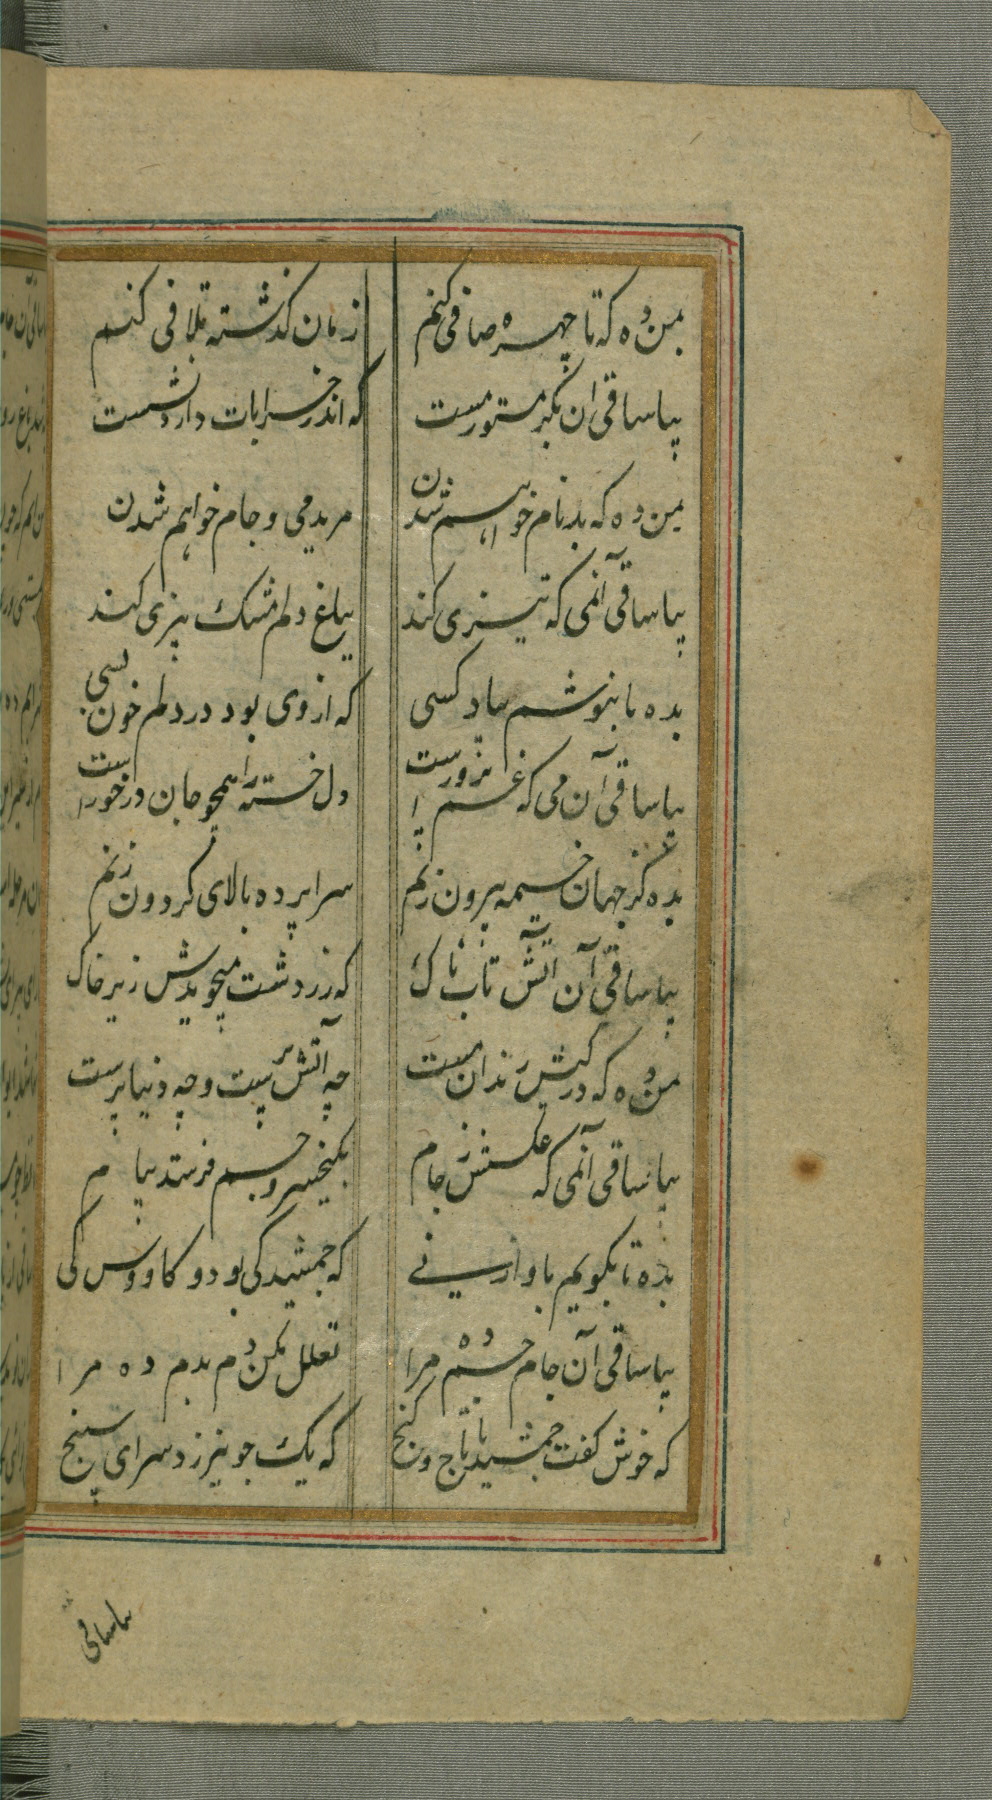 بمن ده که تا چهره صافی کنم زمان کذشته تلافی کنم
بیا ساقی ان بکر مستور مست که اندر خرابات دارد نشست
بمن ده که بدنام خواهم شدن مرید می و جام خواهم شدن
بیا ساقی آنمی که تیزی کند بباغ دلم مشک بیزی کند
بده تا بنوشم بیاد کسی که از وی بود در دلم خون بسی
بیا ساقی آن می که غم پرورست دل خسته را همچو جان درخورست
بده کز جهان خیمه بیرون زنم سراپرده بالای کردون زنم
بیا ساقی آن آتش تاب ناک که زردشت میجویدش زیر خاک
بمن ده که در کیش رندان مست چه آتش پرست و چه دنیا پرست
بیا ساقی آنمی که عکسش ز جام بکیخسرو و جم فرستد پیام
بده تا بکویم باواز نی که جمشید کی بود و کاووس کی
بیا ساقی آن جام جم ده مرا تعلل مکن دم بدم ده مرا
که خوش کفت جمشید با تاج و کنج که یک جو نیرزد سرای سپنج
بیا ساقی